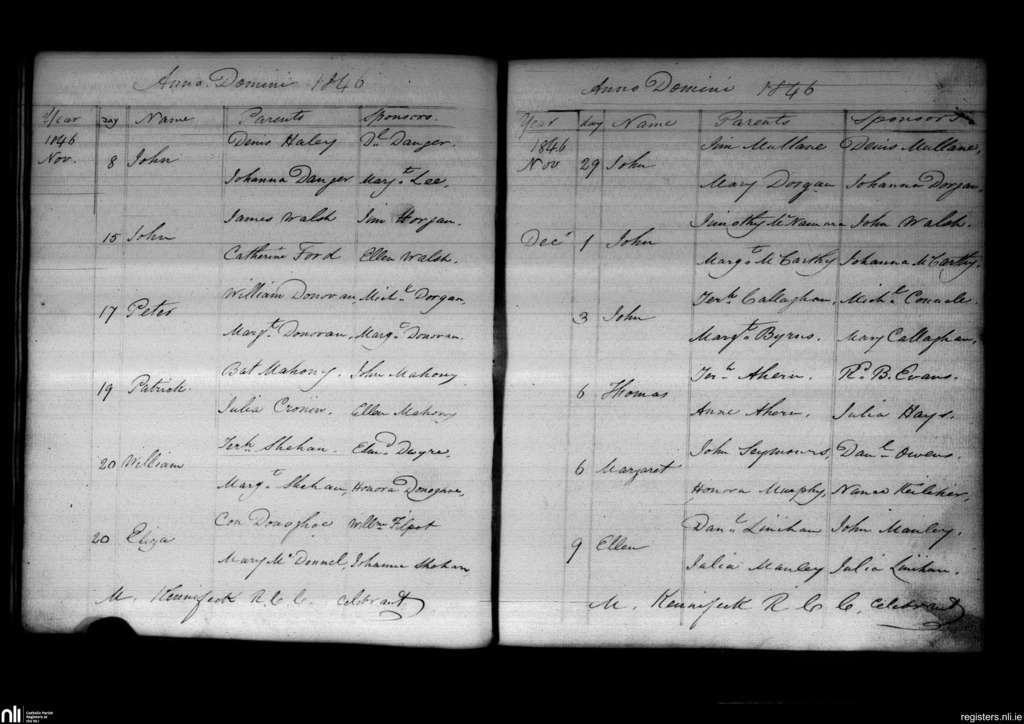 Anno Domini 1846
Year day Name Parents Sponsors.
1846 Denis Haley Dl Danger.
Nov. 8 John
Johanna Danger Margt Lee.
James Walsh Jim Horgan.
15 John
Catherine Ford Ellen Walsh.
William Donovan Michl Dorgan
17 Peter
Margt Donovan. Margt Donovan.
Bat Mahony. John Mahony
19 Patrick.
Julia Cronin. Ellen Mahony
Jerh Shehan. Edmd Dwyre.
20 William
Margt Shehan, Honora Donoghoe,
Con Donoghoe Willm Filpot
20 Eliza
Mary McDonnel, Johanna Shehan,
M. Kennifeck R. C. C. Celebrant
Anno Domini 1846
Year day Name Parents Sponsors
1846 Jim Mullane Denis Mullane,
Nov 29 John
Mary Dorgan Johanna Dorgan.
Timothy McNamara John Walsh.
Decr 1 John
Margt McCarthy Johanna McCarthy.
Jerh Callaghan, Michl
3 John
Margt Byrns. Mary Callaghan,
Jerh Ahern. Rd. B. Evans.
6 Thomas
Anne Ahern. Julia Hays.
John Seymours, Danl Owens.
6 Margaret
Honora Murphy, Nance Keliher,
Danl Linihan John Manley.
9 Ellen
Julia Manley Julia Linihan.
M. Kennifeck R C C, Celebrant
nli
Catholic Parish
Registers at
the NLI
registers.nli.ie